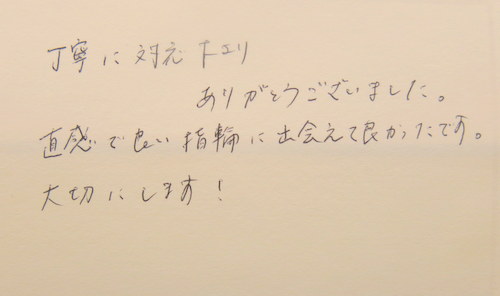 丁寧に対応下さり
ありがとうございました。
直感で良い指輪に出会えて良かったです。
大切にします！